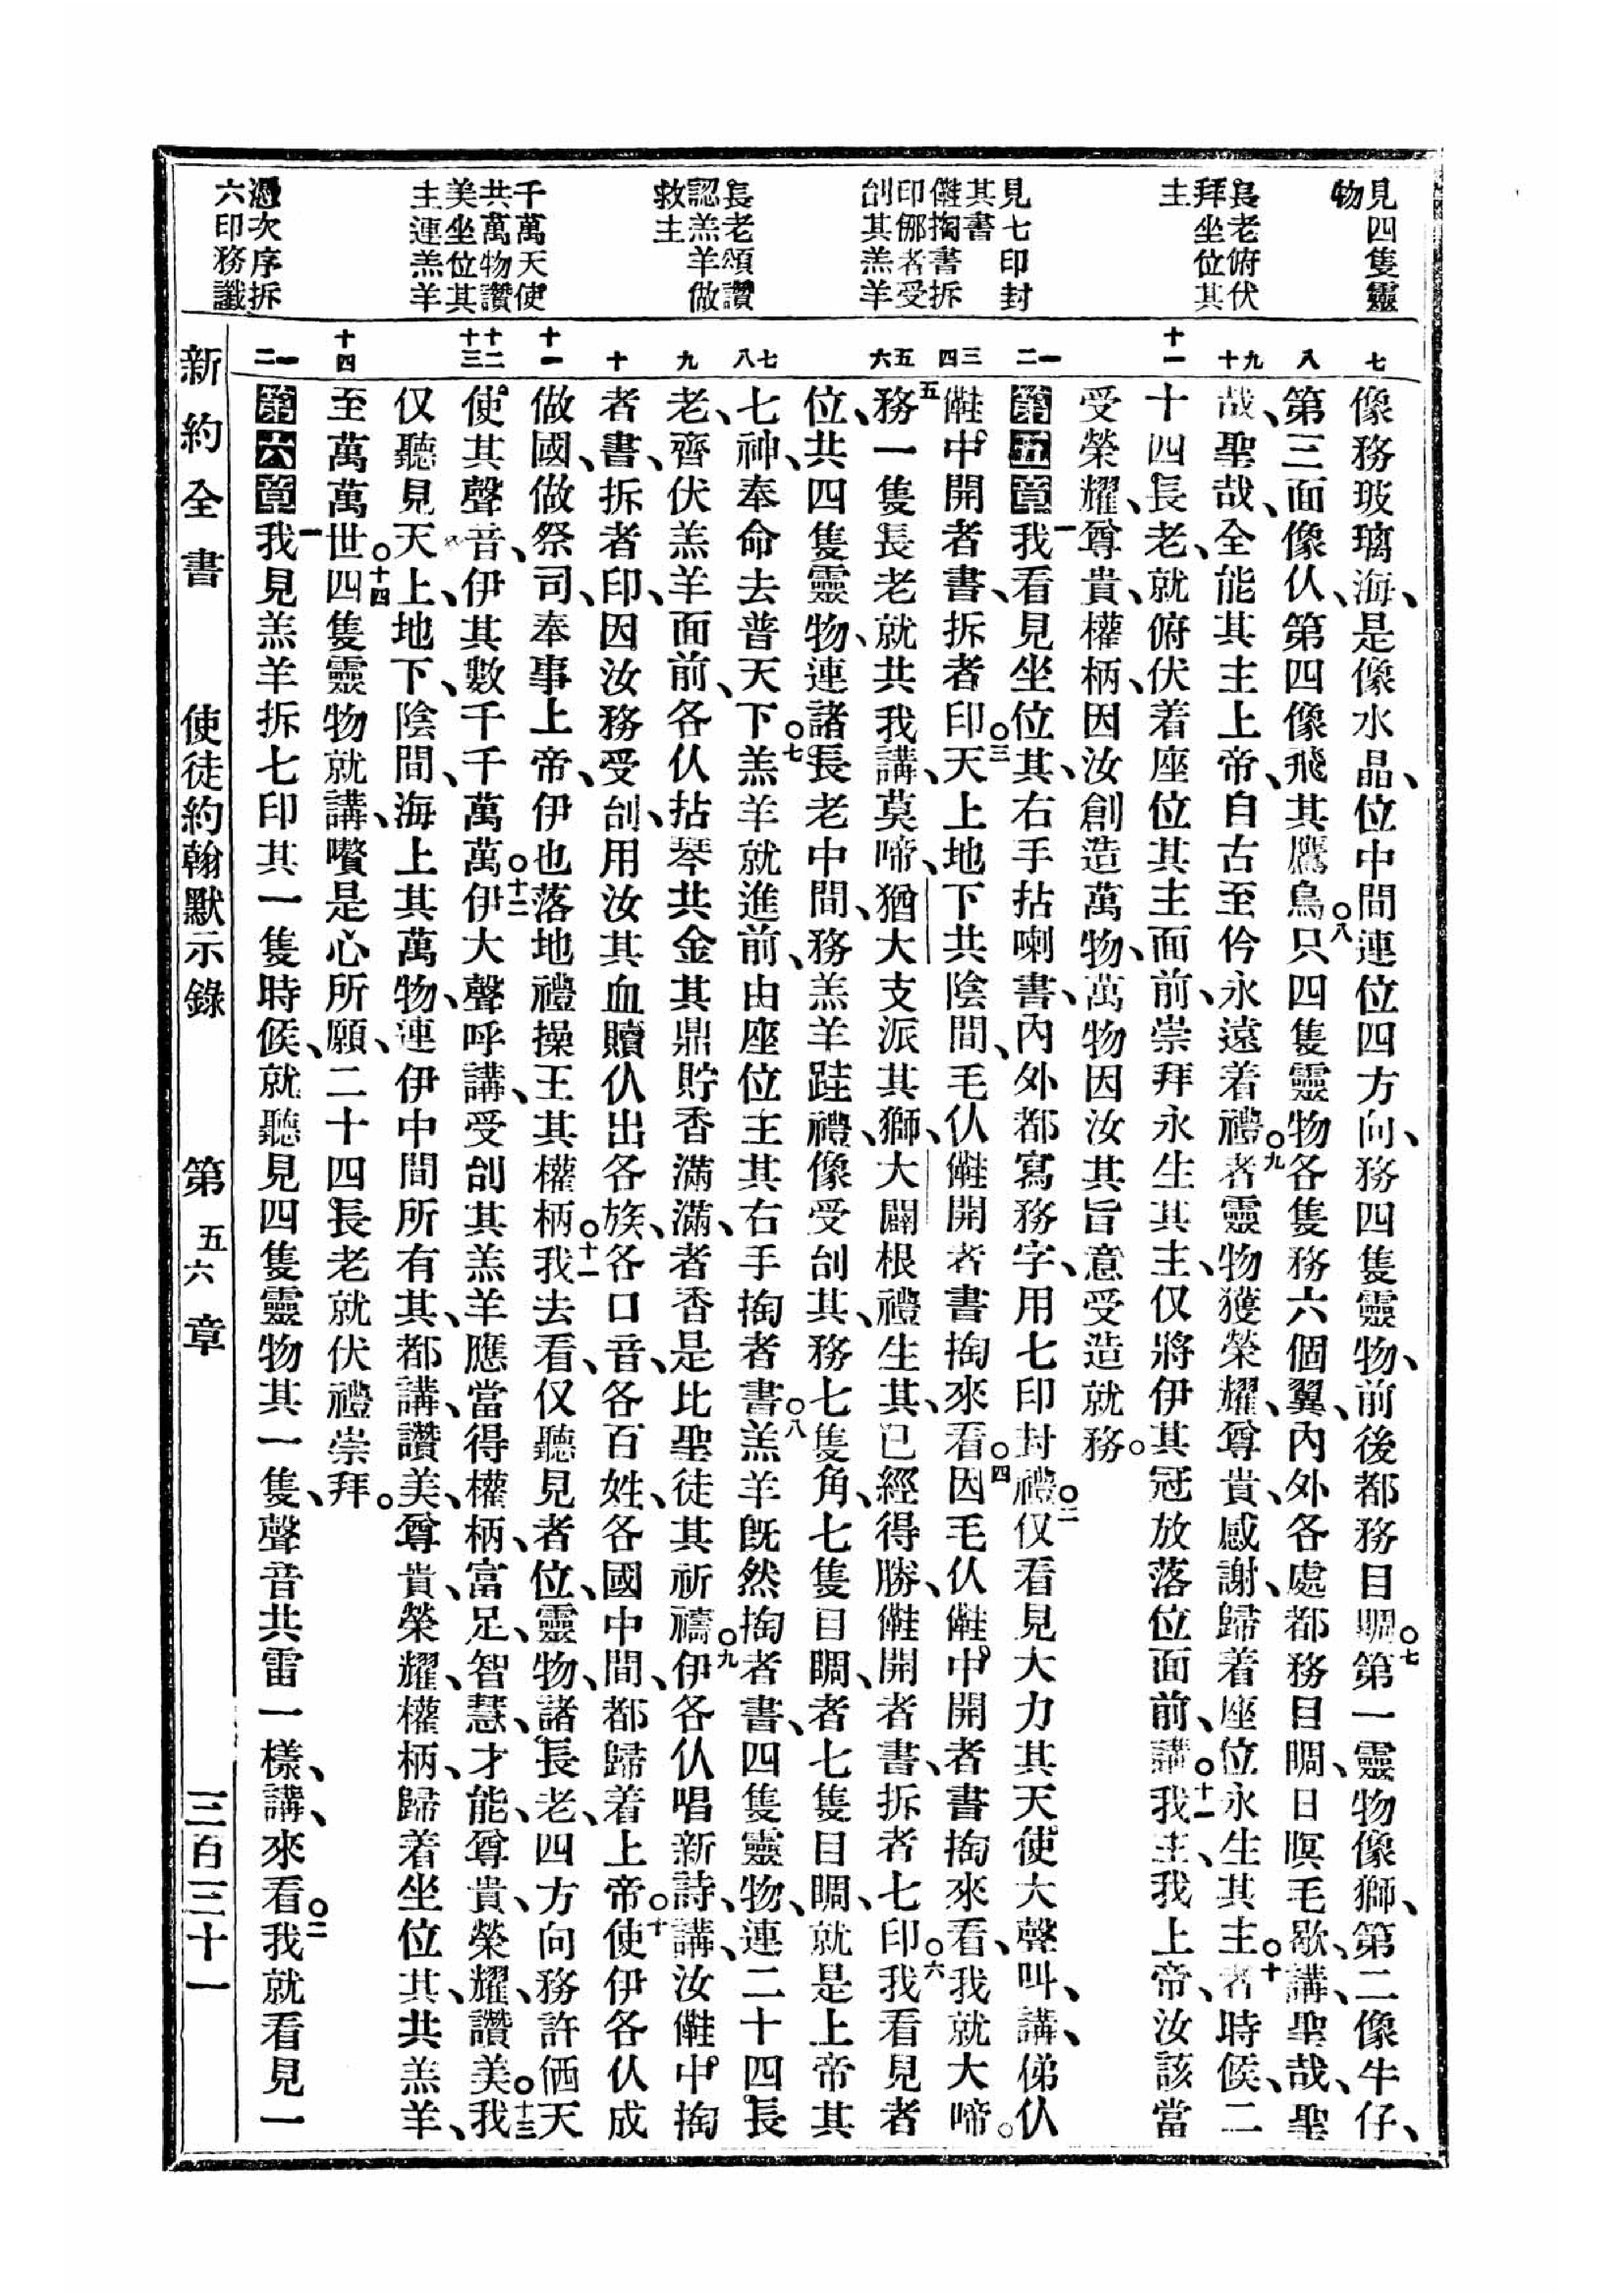 見四隻靈
物
長老俯伏
拜坐位其
主
見七印封
其書
㒁掏書拆
印㑚者受
刣其羔羊
長老頌讚
認羔羊做
救主
千萬天使
共萬物讚
美坐位其
主連羔羊
憑次序拆
六印務讖
七
八
九 十
十一
一 二
三 四
五 六
七 八
九
十
十一
十二 十三
十四
一 二
像務玻璃海、是像水晶、位中間連位四方向、務四隻靈物、前後都務目睭。七第一靈物像獅、第二像牛仔、
第三面像仈、第四像飛其鷹鳥。八只四隻靈物各隻務六個翼、內外各處都務目睭、日暝毛歇、講、聖哉、聖
哉、聖哉、全能其主上帝、自古至仱永遠着禮。九者靈物、物獲榮耀、尊貴、感謝、歸着座位永生其主。十者時候、二
十四長老、就俯伏着座位其主面前、崇拜永生其主、仅將伊其冠放落位面前、講。十一我主、我上帝、汝該當
受榮耀、尊貴、權柄、因汝創造萬物、萬物因汝其旨意受造就務。
第五章一我看見坐位其、右手拈喇書、內外都寫務字、用七印封禮。二仅看見大力其天使大聲叫、講、㑚仈
㒁中開者書、拆者印。三天上地下共陰間、毛仈㒁開者書掏來看。四因毛仈㒁中開者書掏來看、我就大啼。
五務一隻長老就共我講、莫啼、猶大支派其獅、大闢根禮生其、已經得勝、㒁開者書、拆者七印。六我看見者
位、共四隻靈物、連諸長老中間、務羔羊跬禮、像受刣其、務七隻角、七隻目睭、者七隻目睭、就是上帝其
七神、奉命去普天下。七羔羊就進前、由座位主其右手掏者書。八羔羊旣然掏者書、四隻靈物、連二十四長
老、齊伏羔羊面前、各仈拈琴共金其鼎貯香滿滿、者香是比聖徒其祈禱。九伊各仈唱新詩、講、汝㒁中掏
者書、拆者印、因汝務受刣、用汝其血贖仈出各族、各口音、各百姓、各國中間、都歸着上帝。十使伊各仈成
做國、做祭司、奉事上帝、伊也落地禮操王其權柄。十一我去看、仅聽見者位、靈物、諸長老、四方向務許価天
使其聲音、伊其數千千萬萬。十二伊大聲呼講、受刣其羔羊應當得權柄、富足、智慧、才能、尊貴、榮耀、讚美。十三我
仅聽見天上、地下、陰間、海上其萬物、連伊中間所有其、都講、讚美、尊貴、榮耀、權柄、歸着坐位其、共羔羊、
至萬萬世。十四四隻靈物就講、嚽是心所願、二十四長老就伏禮崇拜。
第六章一我見羔羊拆七印其一隻時候、就聽見四隻靈物其一隻、聲音共雷一樣、講、來看。二我就看見一
新約全書 使徒約翰默示錄 第五六章 三百三十一